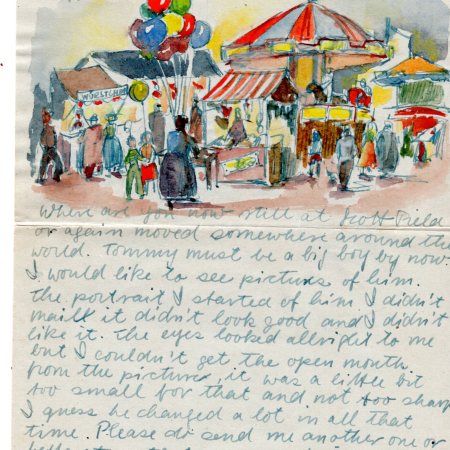 WÜRSTCHEN
Where are you now still at Scott Field
or again moved somewhere around the
world. Tommy must be a big boy by now.
I would like to see pictures of him.
The portrait I started of him I didn't
maill it didn't look good and I didn't
like it. The eyes looked allright to me
but I couldn't get the open mouth
from the picture, it was a little bit
too small for that and not too sharp
I guess he changed a lot in all that
time. Please do send me another one or